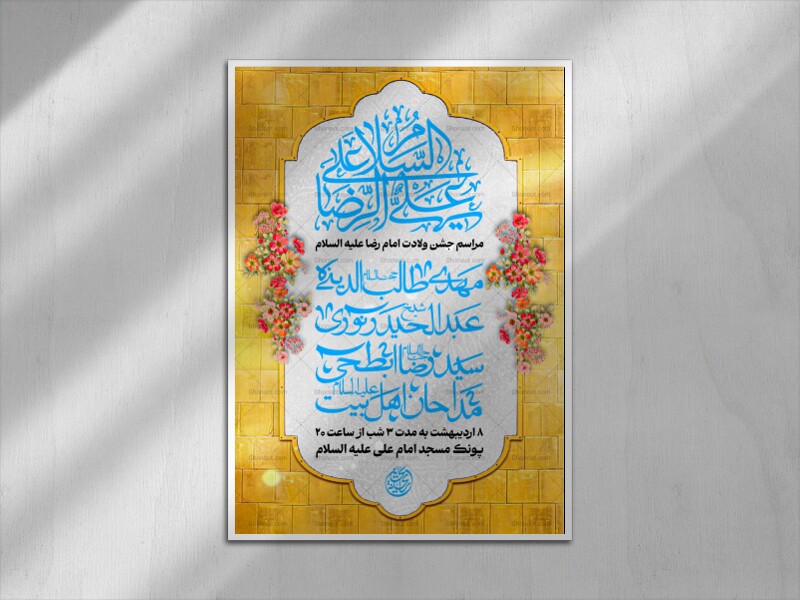 السلام علی
علی الرضا
مراسم جشن ولادت امام رضا علیه السلام
مهدی طالب الدینزه
شیخ
عبدالحیدر نوری
سید رضا ابطحی
مداحان اهل بیت علیه السلام
۸ اردیبهشت به مدت ۳ شب از ساعت ۲۰
پونک مسجد امام علی علیه السلام